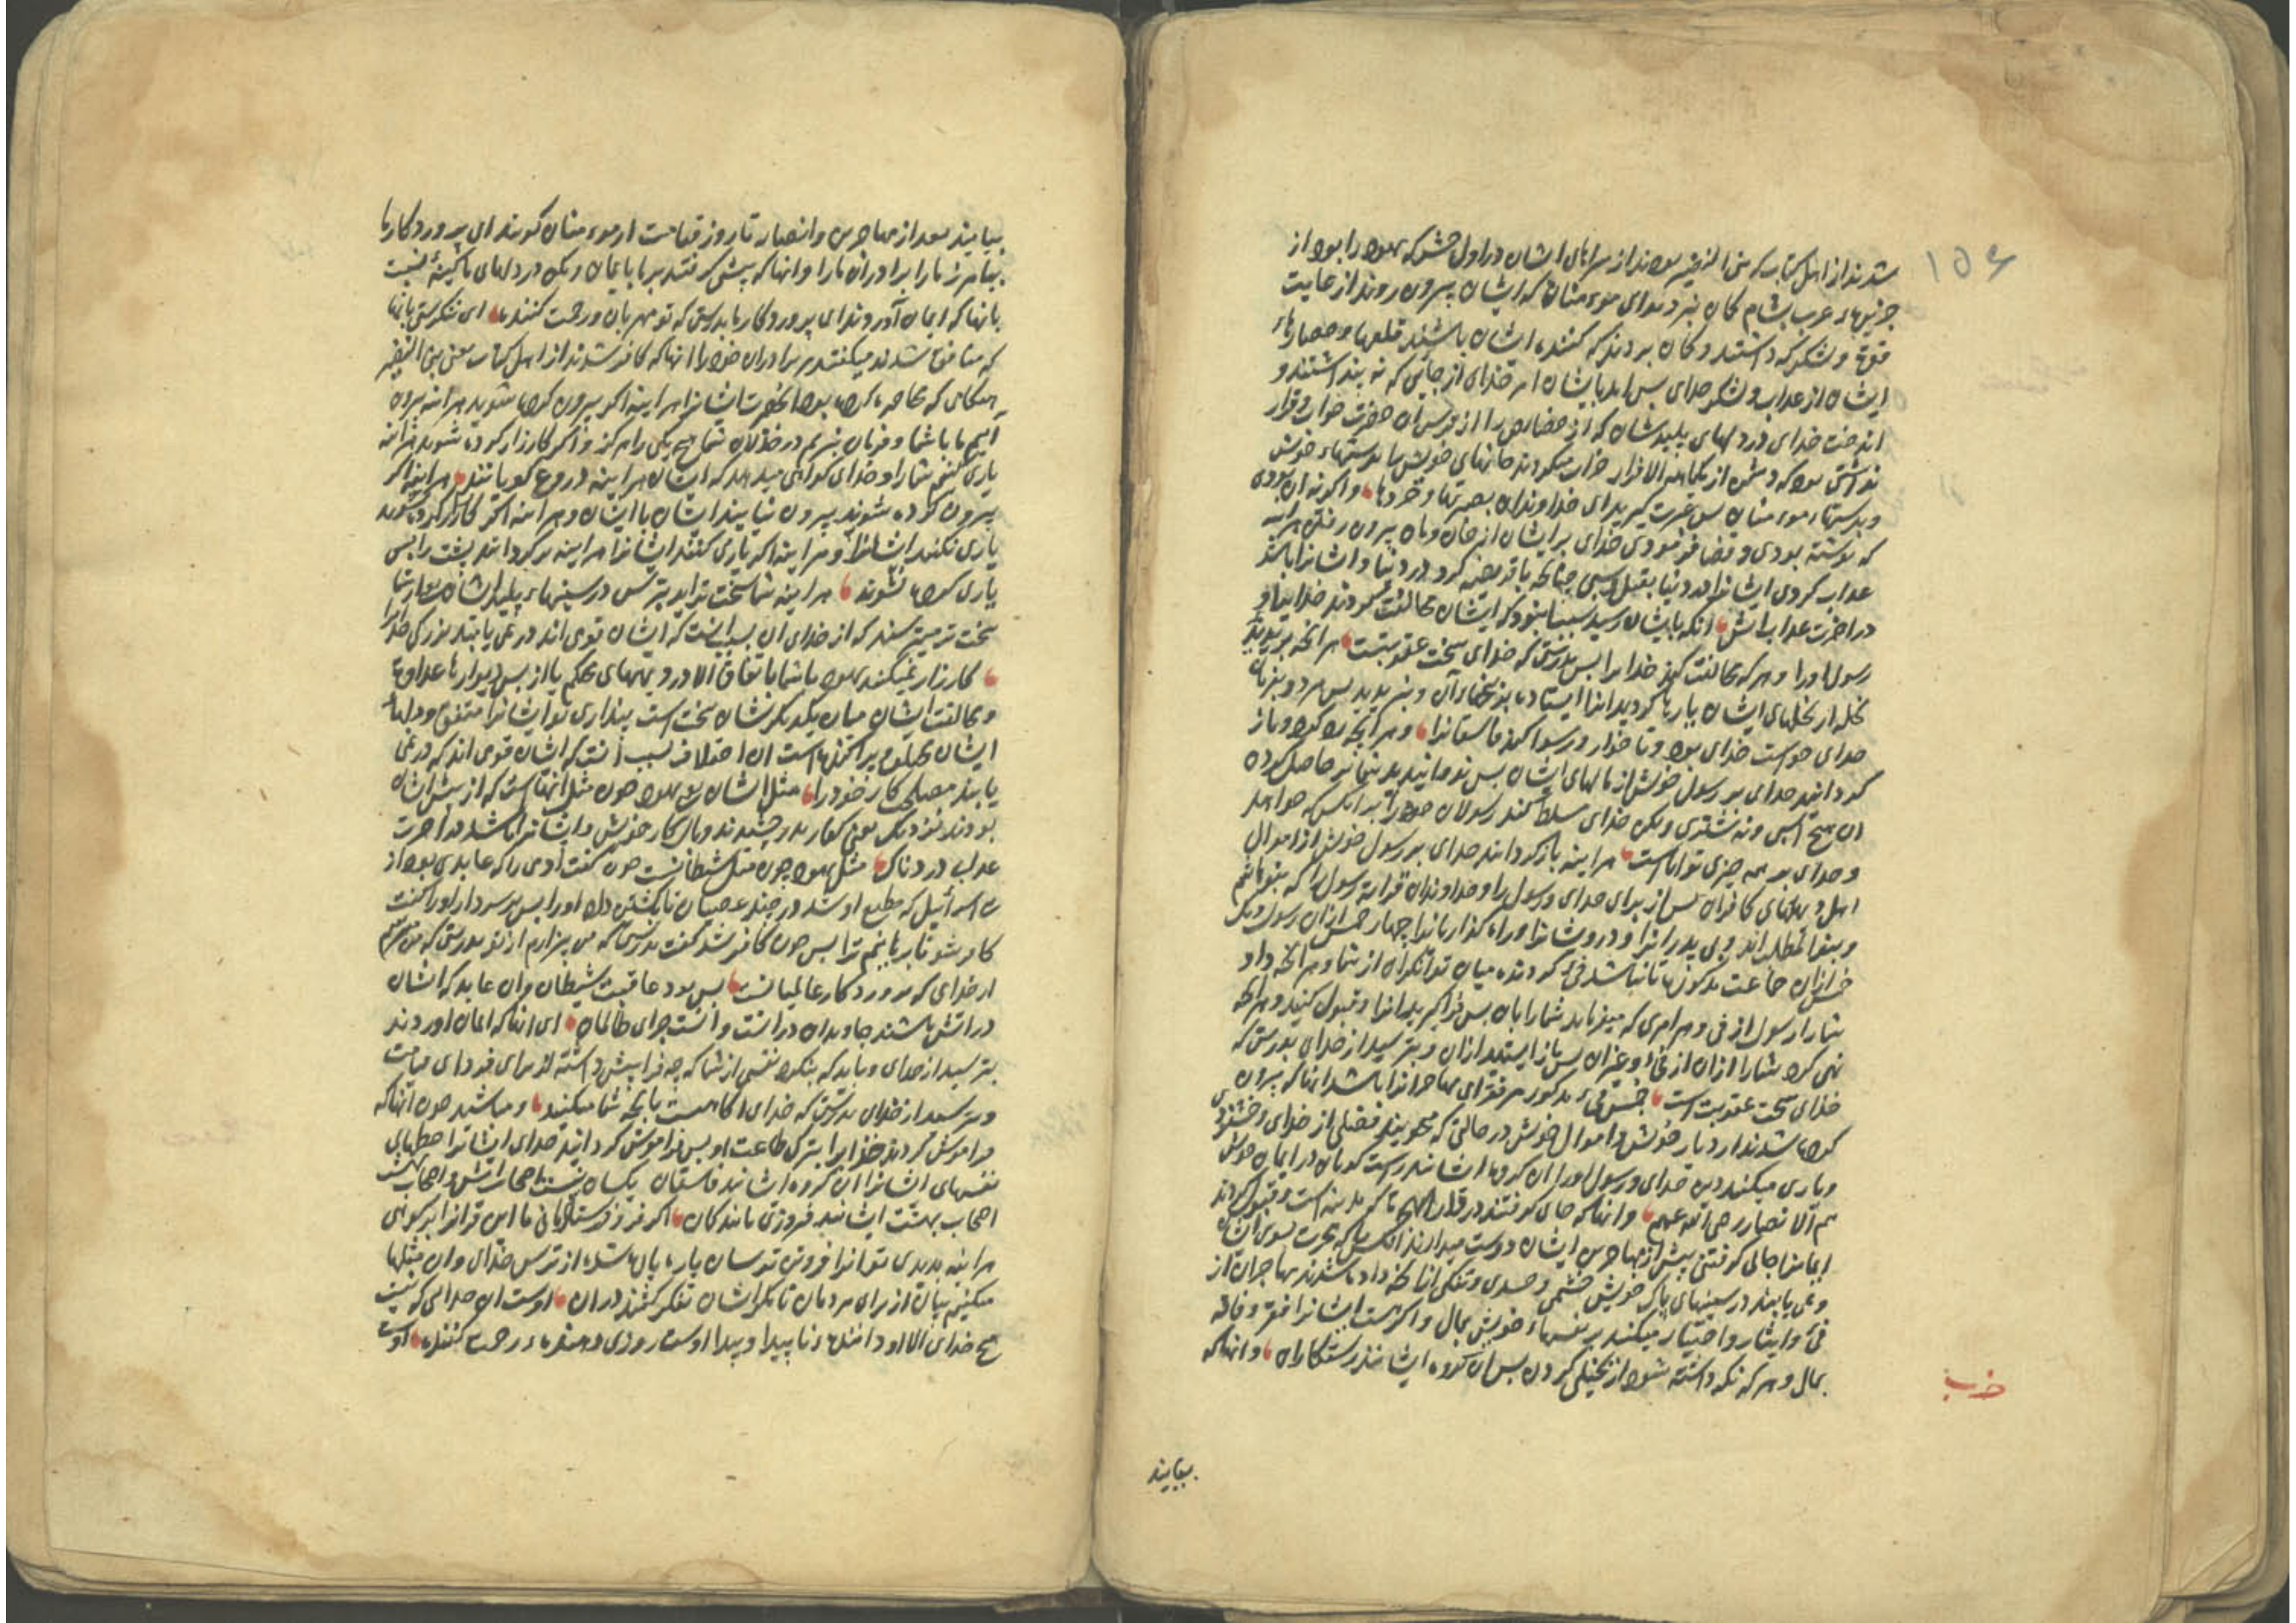 ۱۵۶
شدند از اهل کتاب که بنی النضیر بودند از سراهای ایشان در اول حشر که یهود را بود از
جزیرهاء عرب بشام کمان نبردید ای مومنان که ایشان بیرون روند از غایت
قوة و لشکر که داشتند و کمان بردند که کننده ایشان باشند قلعها و حصارهاء
ایشان از عذاب و لشکر خدای پس آمد بایشان امر خدای از جایی که نه پنداشتند و
انداخت خدای در دلهای پلیدشان که از خصایص را از ترس آن حضرت خواب و قرار
نداشتی بود که دشمن از یکماهه الا فرار خراب میکردند خانهای خویش با بدستهاء خویش
و بدستهاء مومنان پس عبرت گیرید ای خداوندان بصرتها و خردها و اگر نه آن بودی
که نوشته بودی و قضا فرمودی خدای بر ایشان از خان و مان بیرون رفتن هراینه
عذاب کردی ایشانرا در دنیا بقتل و سبی چنانکه با قریضه کرد در دنیا و ایشانرا باشد
در اخرت عذاب آتش آنکه بایشان رسید بسبب آن بود که ایشان مخالفت کردند خدایرا و
رسول اورا و هر که مخالفت کند خدا یرا پس بدرستی که خدای سخت عقوبتست هرانچه بریدید
نخله از نخلهای ایشان یا رها کردید انرا ایستاده بر بیخهاء آن و نبریدید پس مر دو بفرمان
خدای خواست خدای بود و تا خوار و رسوا کند فاسقانرا و هر آنچه رد کرد و باز
کردانید خدای بر رسول خویش از مالهای ایشان پس ندوانیدید شما بر حاصل کرده
ان هیچ اسپی و نه شتری و لیکن خدای مسلط کند رسولان خود را بر انکس که خواهد
و خدای بر همه چیزی تواناست هر اینه باز کردانید خدای بر رسول خویش از اموال
اهل دیههای کافران پس از برای خدای و رسول را و خداوندان قرابة رسول را که بنو هاشم
و بنو المطلب اند و بی پدرانرا و درویشانرا و راه کذاریانرا چهار خمس ازان رسول و یک
خمس ازان جماعت مذکور تا نباشد فی کردنده میان توانکران از شما و هر انچه داد
شمارا رسول از فی و هر امری که میفرماید شما را بان پس فرا گیرید انرا و قبول کنید و هر انچه
نهی کرد شما را ازان از فی و غیر ان پس باز ایستید ازان و بترسید از خدای بدرستی که
خدای سخت عقوبت است خمس فیء مذکور مر فقرای مهاجرانرا باشد انها که بیرون
کرده شدند از دیار خویش و اموال خویش در حالتی که میجویند فضلی از خدای و خشنودی
و یاری میکنند دین خدای و رسول اورا ان کروه ایشانند راست کویان در ایمان خویش
هم الانصار رضی الله عنهم و انها که جای کرفتند در دار الهجرة که مدینه است و قبول کردند
ایمانرا جای کرفتن پیش از مهاجرین ایشان دوست میدارند انکس را که هجرت سوی ایشان
و نمی یابند در سینهای پاک خویش خشمی و حسدی و تنکی از انچه داده شدند مهاجران از
فیء و ایثار و اختیار میکنند بر نفسهاء خویش بمال و اگرچه هست ایشانرا فقر و فاقه
بمال و هر که نکه داشته شود از بخیلی کردن پس ان کروه ایشانند رستکاران و انها که
حزب
بیایند
بیایند بعد از مهاجرین و انصار تا روز قیامت از مومنان کویند ای پروردکار ما
بیامرز مارا و برادران مارا و انها که پیشی کرفتند بر ما بایمان و مکن در دلهای ما کینهٔ نسبت
بانها که ایمان آوردند ای پروردکار ما بدرستی که تو مهربان و رحمت کننده ای ننکرستی بانها
که منافق شدند میکفتند مر برادران خود را انها که کافر شدند از اهل کتاب یعنی بنی النضیر
هنکامی که محاصره کرده بود انحضرت ایشانرا هر اینه اکر بیرون کرده شوید هر اینه بیرون
آییم ما با شما و فرمان نبریم در خذلان شما هیچ یکی را هرکز و اکر کارزار کرده شوید هراینه
یاری کنیم شمارا و خدای کواهی میدهد که ایشان هر اینه دروغ کویانند هر اینه اکر
بیرون کرده شوند بیرون نیایند ایشان با ایشان و هر اینه اکر کارزار کرده شوند
یاری نکنند ایشانرا و هر اینه اکر یاری کنند ایشانرا هر اینه برکردانند پشت را پس
یاری کرده نشوند هر اینه شما سخت تراید بترس در سینهاء پلید ایشان
سخت تر میترسند که از خدای ان بسبب انست که ایشان قومی اند در نمی یابند بزرکی خدا را
کارزار نمیکنند یهود با شما باتفاق الا در دیههای محکم یا از پس دیوارها عداوة
و مخالفت ایشان میان یکدیکرشان سخت است پنداری تو ایشانرا متفق و دلهاء
ایشان مختلف و پراکنده است ان اختلاف بسبب انست که ایشان قومی اند که در نمی
یابند مصلحة کار خود را مثل ایشان یعنی یهود چون مثل انهاست که از پیش ایشان
بودند نزدیک یعنی کفار بدر چشیدند وبال کار خویش و ایشانرا باشد در اخرت
عذاب دردناک مثل یهود چون مثل شیطانست چون کفت آدمی را که عابدی بود از
بنی اسرائیل که مطیع او شد در چند عصیان تا بکشتن داد او را پس بر سر دار او را کفت
کافر شو تا برهانم ترا پس چون کافر شد کفت بدرستی که من بیزارم از تو بدرستی که من میترسم
از خدای که پروردکار عالمیانست پس بود عاقبت شیطان و ان عابد که ایشان
در آتش باشند جاویدان در انست و انست جزای ظالمان ای انها که ایمان اوردند
بترسید از خدای و باید که بنکرد نفسی از شما که چه فرا پیش داشته از برای فردای قیامت
و بترسید از خدای بدرستی که خدای اکاهست بانچه شما میکنید و مباشید چون انها که
فراموش کردند خدایرا بترک طاعت او پس فراموش کردانید خدای ایشانرا حظهای
نفسهای ایشانرا ان کروه ایشانند فاسقان یکسان نیست اصحاب آتش و اصحاب بهشت
اصحاب بهشت ایشانند فیروزی یابندکان اکر فرو فرستادمانی ما این قرانرا بر کوهی
هراینه بدیدی تو انرا فروتن ترسان پاره پاره شده از ترس خدای و ان مثلها
میکنیم بیان از برای مردمان تا مکر ایشان تفکر کنند دران اوست ان خدایی که نیست
هیچ خدای الا او دانندهء ناپیدا و پیدا اوست روزی دهندهء رحمت کننده اوست